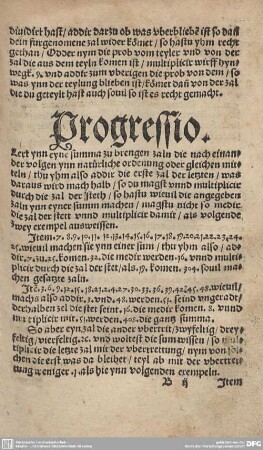 diuidirt hast/ addir darzu ob was vberbliebē ist so das
dein fürgenomene zal wider kōmet/ so hastu yhm recht
gethan/ Odder nym die prob vom teyler vnd von der
zal die aus dem teyln komen ist/ multiplicir wirff hyn
wegk .9. vnd addir zum vberigen die prob von dem/ so
vnn der teylung blieben ist/ kōmet dan von der zal
die du geteylt hast auch souil so ist es recht gemacht.
Progressio.
Lert ynn eyne summa zu brengen zaln die nach einan
der volgen ynn natürliche ordenung oder gleichen mit
teln/ thu yhm also addir die erste zal der letzten/ was
daraus wird mach halb/ so du magst vnnd multiplicir
durch die zal der stedt/ so hastu wieuil die angegeben
zaln ynn eyner summ machen/ magstu nicht so medir
die zal der stett vnnd multiplicir damit/ als volgende
zwey exempel ausweissen.
Item .7. 8. 9. 10. 11. 12. 13. 14. 15. 16. 17. 18. 19. 20. 21. 22. 23. 24
25. wieuil machen sie ynn einer sum/ thu yhm also/ ad
dir .7. zu .25. komen .32. die medir werden .16. vnnd mul
plicir durch die zal der stet/ als .19. komen .304. souil ma
chen gesatzte zaln.
Itē. 3. 6. 9. 12. 15. 18. 21. 24. 27. 30. 33. 36. 39. 42. 45. 48. wieuil/
machs also addir .3. vnd .48. werden .51. seind vngerade/
derhalben zel die stet seint .16. die medir komen .8. vnnd
multiplicir mit .51. werden .408. die gantz summa.
So aber eyn zal die ander vbertrit/ zwyfeltig/ drey
feltig/ vierfeltig. zc. vnd woltest die sum wissen/ so mul
tiplicir die letzte zal mit der vbertrettung/ nym von
dem die erst was da bleibet/ teyl ab mit der vbertret
tung weniger .1. als hie ynn volgenden exempeln.
B ij Item